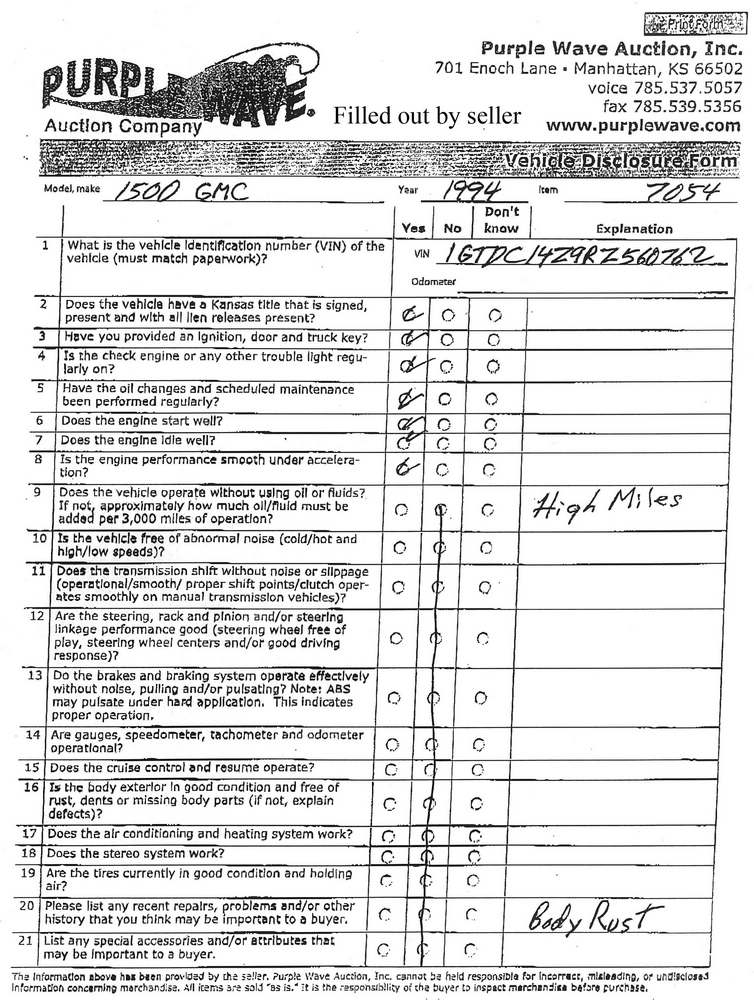 Print Form
Purple Wave Auction, Inc.
701 Enoch Lane • Manhattan, KS 66502
voice 785.537.5057
fax 785.539.5356
www.purplewave.com
PURPLE WAVE.
Auction Company
Filled out by seller
Vehicle Disclosure Form
Model, make 1500 GMC Year 1994 Item 7054
Yes No Don't know Explanation
1 What is the vehicle identification number (VIN) of the
vehicle (must match paperwork)?
VIN 1GTDC14Z9RZ560762
Odometer
2 Does the vehicle have a Kansas title that is signed,
present and with all lien releases present?
3 Have you provided an ignition, door and truck key?
4 Is the check engine or any other trouble light regu-
larly on?
5 Have the oil changes and scheduled maintenance
been performed regularly?
6 Does the engine start well?
7 Does the engine idle well?
8 Is the engine performance smooth under accelera-
tion?
9 Does the vehicle operate without using oil or fluids?
If not, approximately how much oil/fluid must be
added per 3,000 miles of operation?
High Miles
10 Is the vehicle free of abnormal noise (cold/hot and
high/low speeds)?
11 Does the transmission shift without noise or slippage
(operational/smooth/ proper shift points/clutch oper-
ates smoothly on manual transmission vehicles)?
12 Are the steering, rack and pinion and/or steering
linkage performance good (steering wheel free of
play, steering wheel centers and/or good driving
response)?
13 Do the brakes and braking system operate effectively
without noise, pulling and/or pulsating? Note: ABS
may pulsate under hard application. This indicates
proper operation.
14 Are gauges, speedometer, tachometer and odometer
operational?
15 Does the cruise control and resume operate?
16 Is the body exterior in good condition and free of
rust, dents or missing body parts (if not, explain
defects)?
17 Does the air conditioning and heating system work?
18 Does the stereo system work?
19 Are the tires currently in good condition and holding
air?
20 Please list any recent repairs, problems and/or other
history that you think may be important to a buyer.
Body Rust
21 List any special accessories and/or attributes that
may be important to a buyer.
The information above has been provided by the seller. Purple Wave Auction, Inc. cannot be held responsible for incorrect, misleading, or undisclosed
information concerning merchandise. All items are sold "as is." It is the responsibility of the buyer to inspect merchandise before purchase.